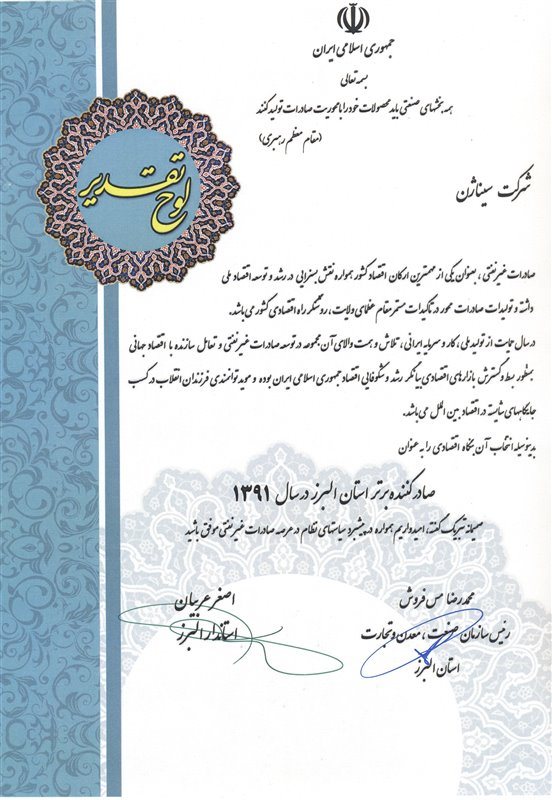 جمهوری اسلامی ایران
بسمه تعالی
همه بخشهای صنعتی باید محصولات خود را با محوریت صادرات تولید کنند
(مقام معظم رهبری)
لوح تقدیر
شرکت سیناژن
صادرات غیرنفتی ، بعنوان یکی از مهمترین ارکان اقتصاد کشور همواره نقش بسزایی در رشد و توسعه اقتصاد ملی
داشته و تولیدات صادرات محور در تاکیدات مستمر مقام عظمای ولایت ، روشنگر راه اقتصادی کشور می باشد.
در سال حمایت از تولید ملی ، کار و سرمایه ایرانی ، تلاش و همت والای آن مجموعه در توسعه صادرات غیرنفتی و تعامل سازنده با اقتصاد جهانی
بمنظور بسط و گسترش بازارهای اقتصادی بیانگر رشد و شکوفایی اقتصاد جمهوری اسلامی ایران بوده و موید توانمندی فرزندان انقلاب در کسب
جایگاههای شایسته در اقتصاد بین الملل می باشد.
بدینوسیله انتخاب آن بنگاه اقتصادی را به عنوان
صادر کننده برتر استان البرز در سال ۱۳۹۱
صمیمانه تبریک گفته، امیدواریم همواره در پیشبرد سیاستهای نظام در عرصه صادرات غیرنفتی موفق باشید
محمدرضا مس فروش
رئیس سازمان صنعت ، معدن و تجارت
استان البرز
اصغر عربیان
استاندار البرز